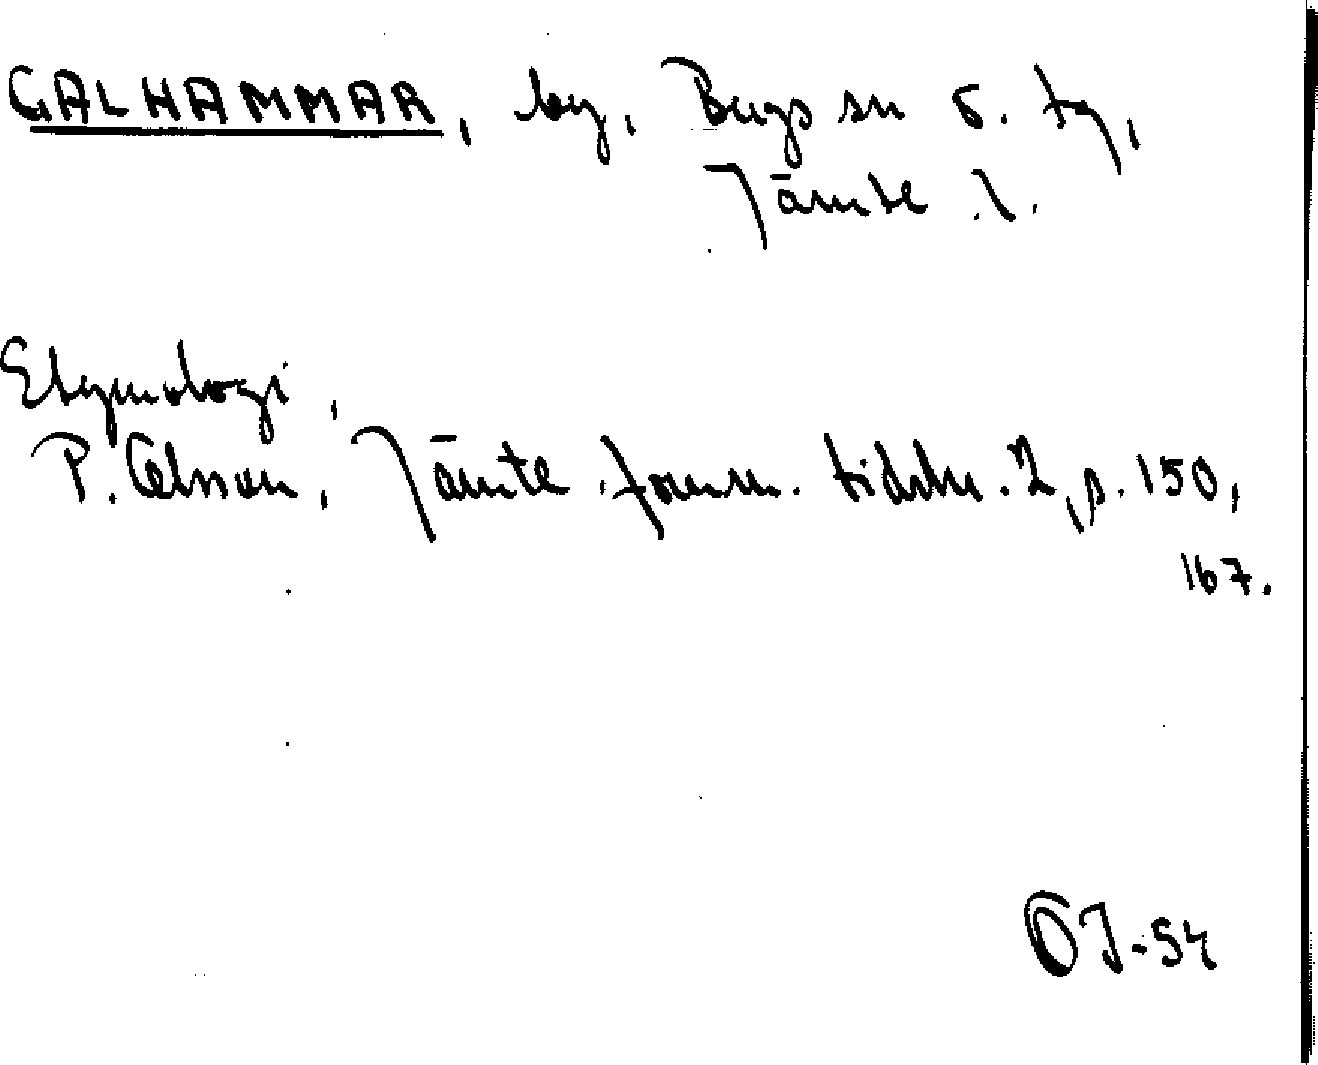 GALHAMMAR, by, Bergs sn o. tg,
Jämtl. l.
Etymologi,
P. Olsson, Jämtl. fornm. tidskr. 2, s. 150,
167.
OJ-54